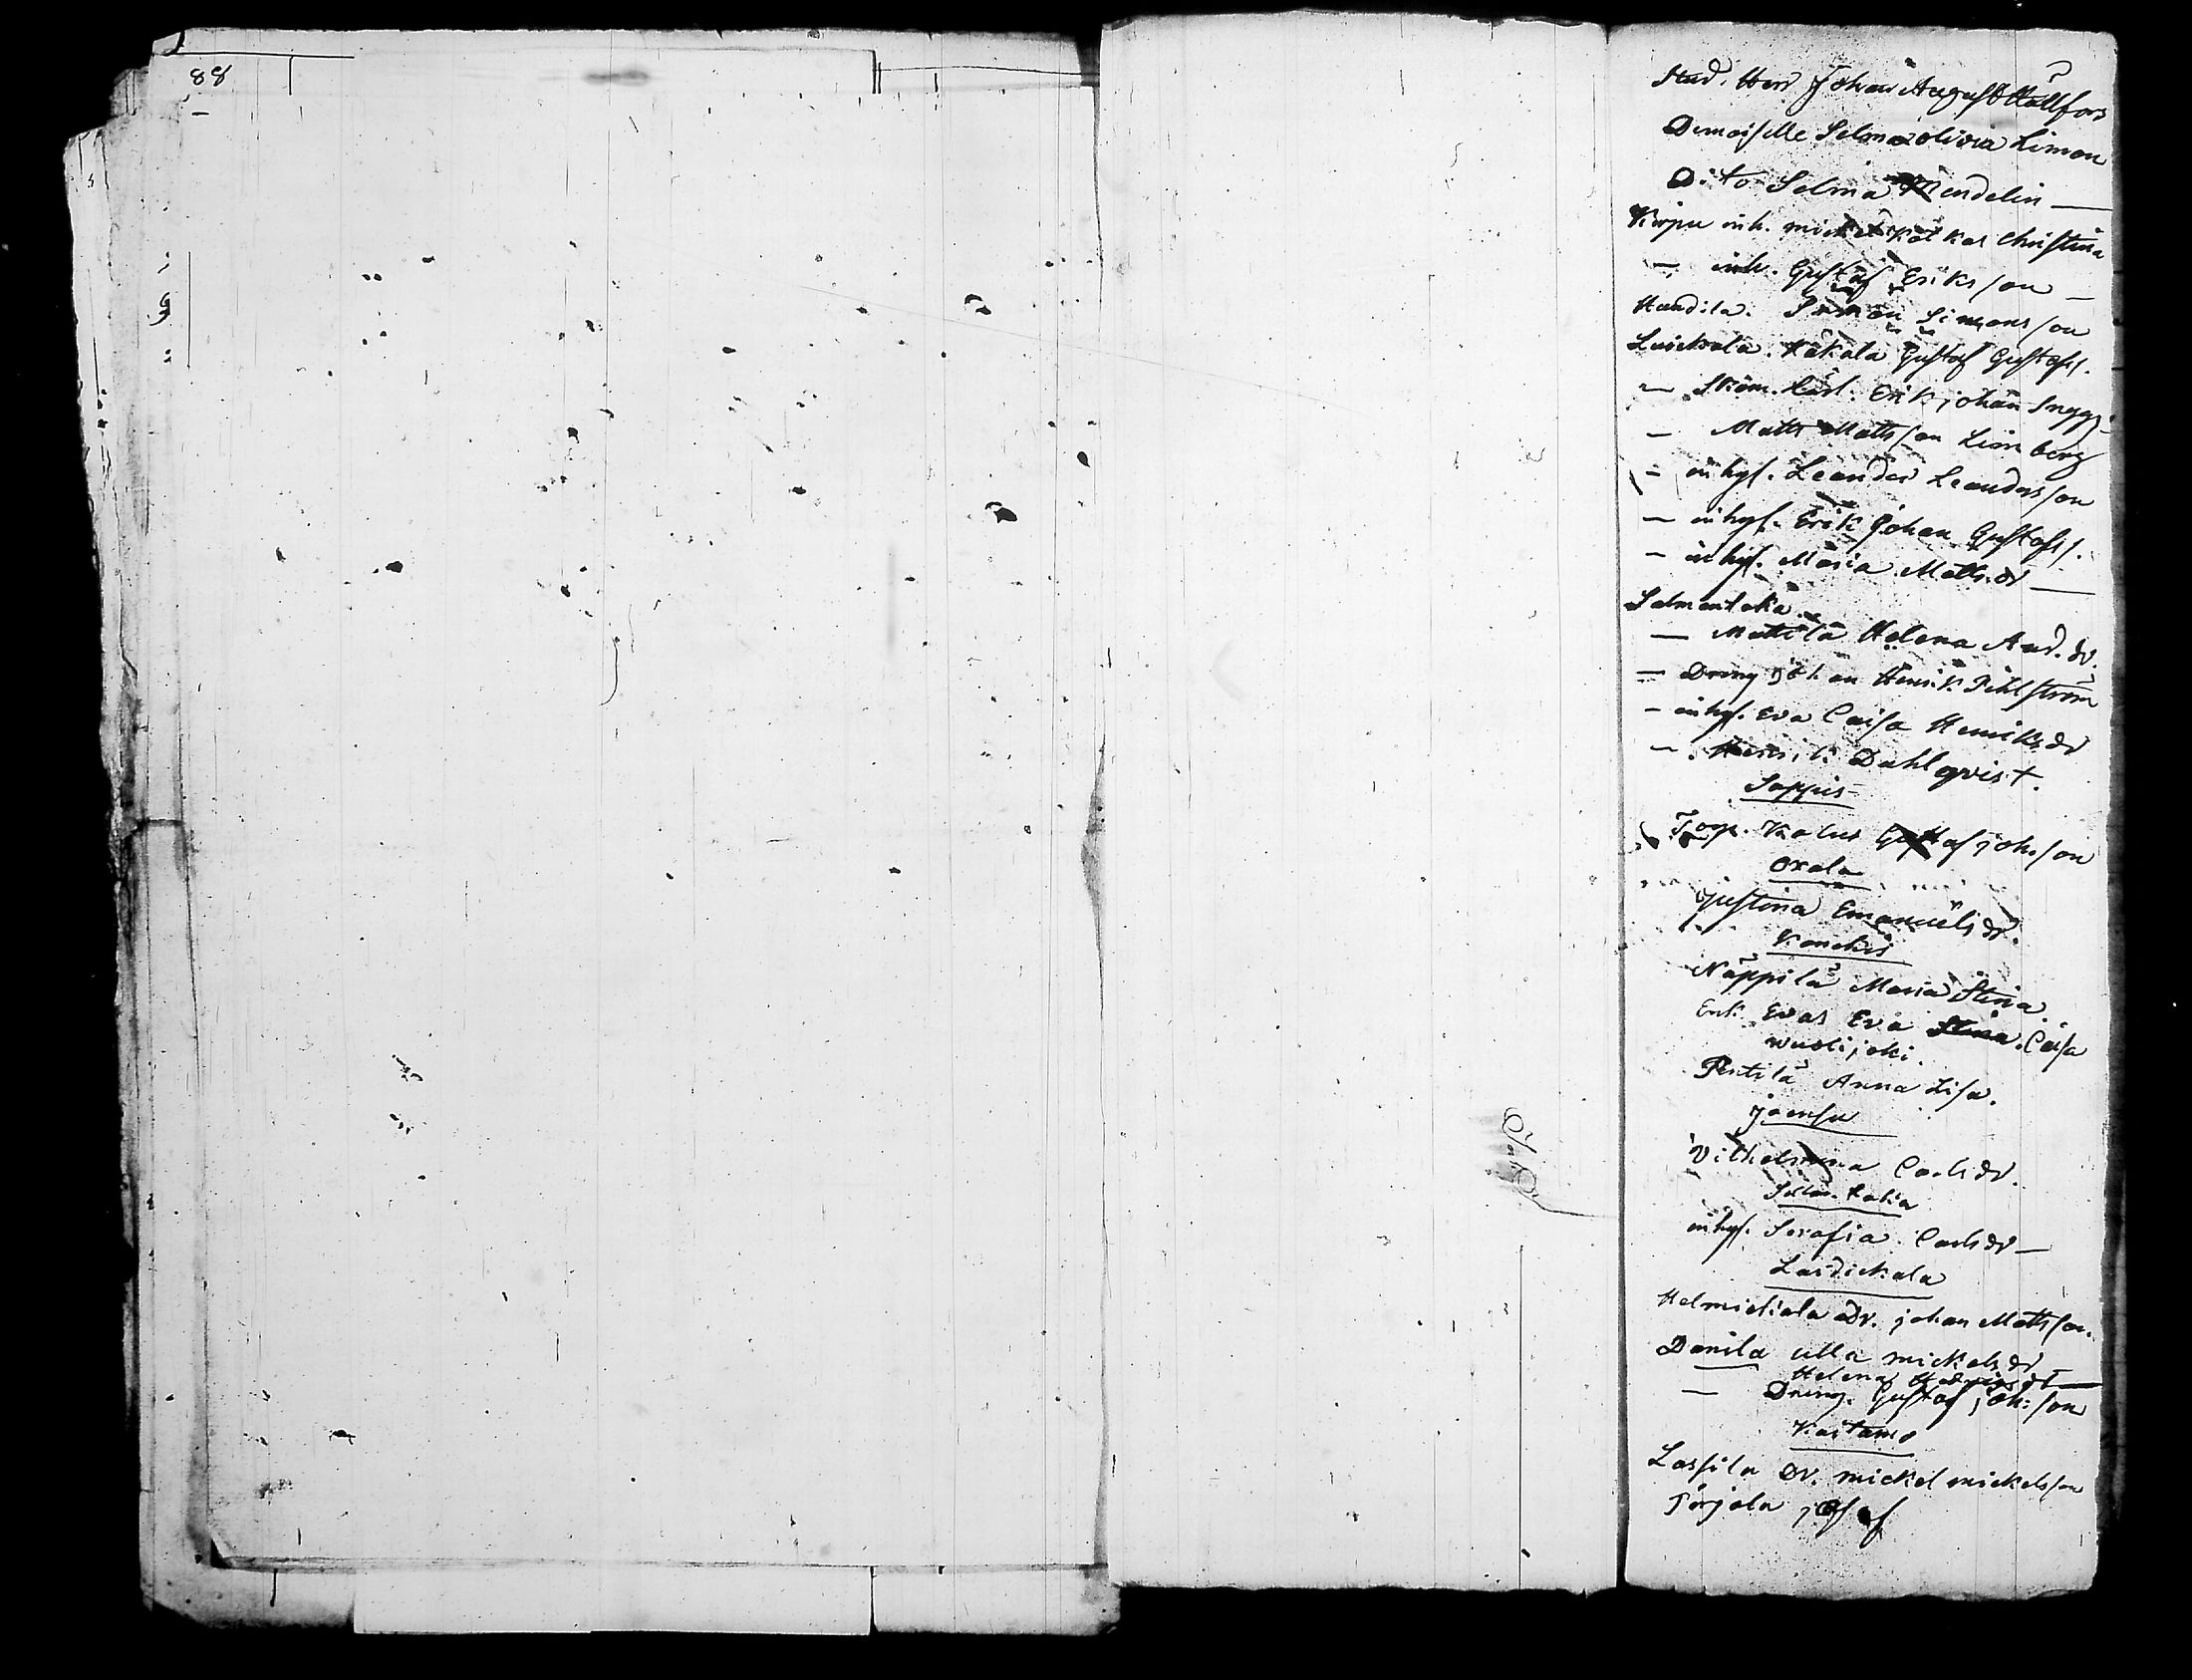 88
Stud. Herr Johan August Hällfors
Demoiselle Selma olivia Liman
Dito Selma Wendelin —
Kirpu inh. mickel kätkas Christina
— inh. Gustaf Eriksson —
Handila. Simon Simonsson
Luickala. Käkälä Gustaf Gustafss.
— Skom. Lärl. Erik johan Snygg
— Matts Mattsson Limberg
— inhys. Leander Leandersson
— inhys. Erik Johan Gustafss.
— inhys. Maria Matts.dr —
Salmentaka
— Mattila Helena And. dr.
— Dreng Johan Henrik Pihlström
— inhys. Eva Caisa Henriksdr
— Henrik Dahlqvist.
Sappis
Torp. Kalus Gustaf joh.son
oxala
Justina Emanuelsdr.
Konckis
Näppilä Maria Stina.
Enk. Evas Eva Stina. Caisa
wuolijoki.
Penttilä Anna Lisa.
joensu
Vilhelmina Carlsdr.
inhys. Serafia. Carlsdr —
Laidickala
dr. johan Mattsson.
Danila ulla mickelsdr
Helena
— Dreng. Gustaf joh:son
Kaitamo
Lassila dr. mickel mickelsson
josef